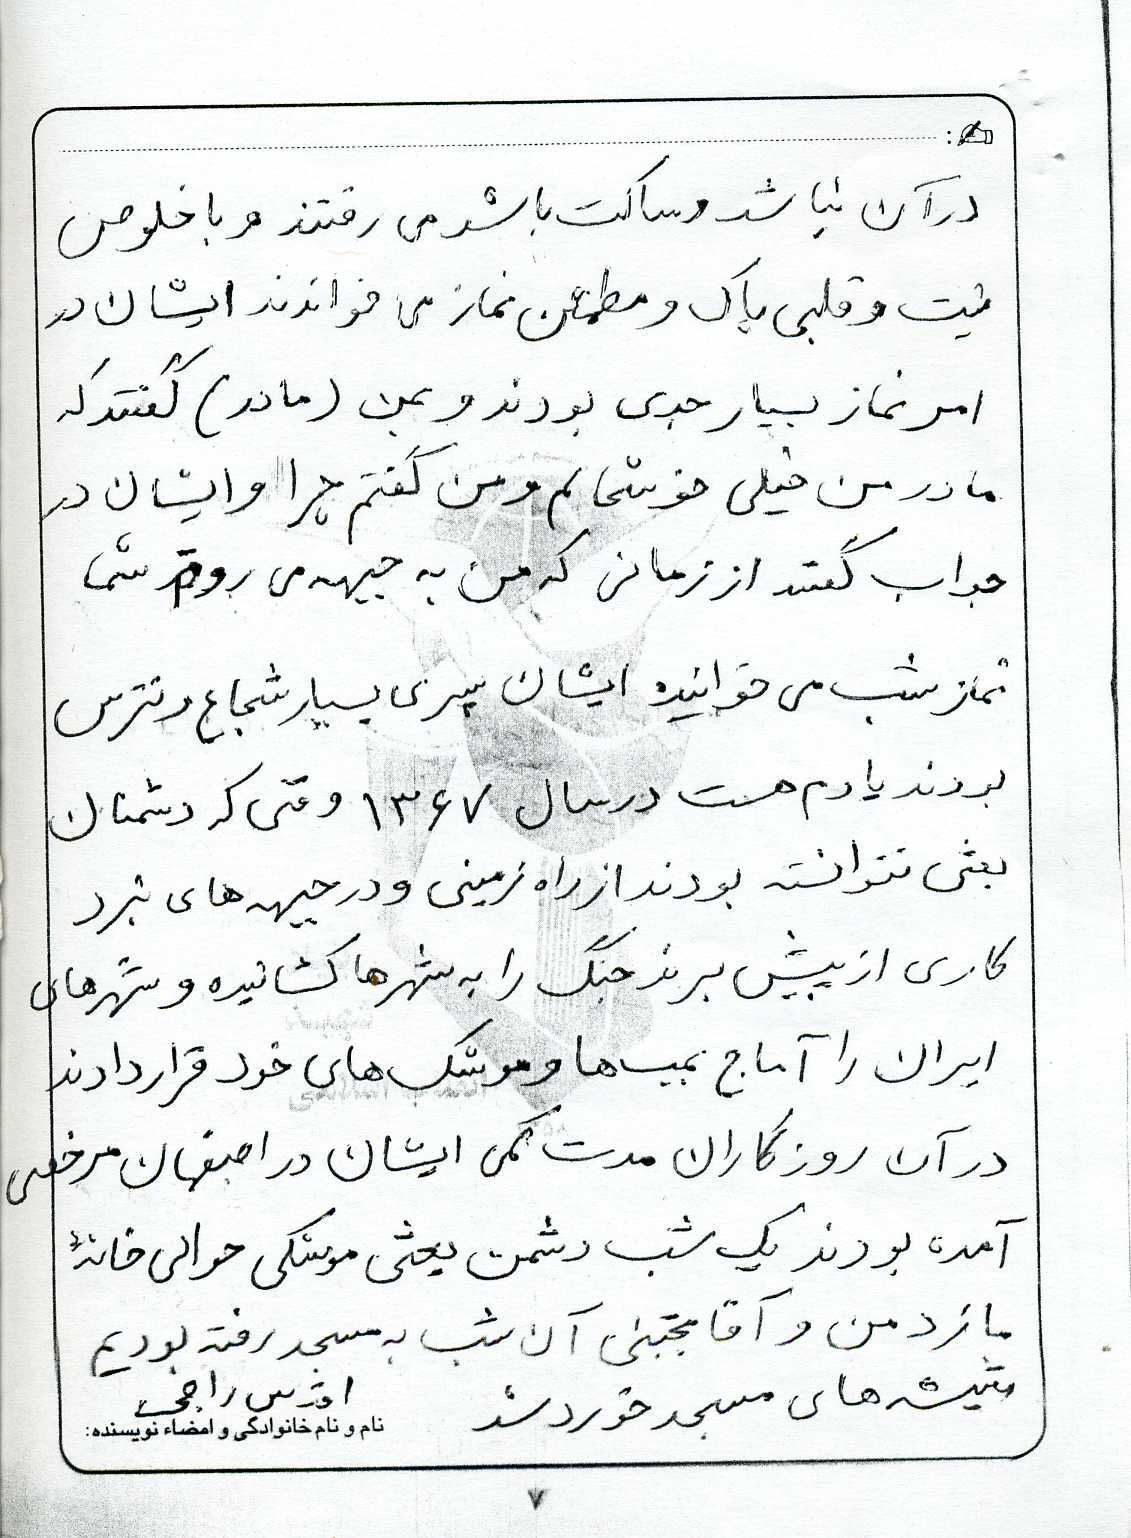 در آن نباشد و ساکت باشد می رفتند و با خلوص
نیت و قلبی پاک و مطمئن نماز می خواندند ایشان در
امر نماز بسیار جدی بودند و بمن (مادر) گفتند که
مادر من خیلی خوشحالم و من گفتم چرا و ایشان در
جواب گفتند از زمانی که من به جبهه می روم شما
نماز شب می خوانید ایشان پسری بسیار شجاع و نترس
بودند یادم هست در سال ۱۳۶۷ وقتی که دشمنان
بعثی نتوانسته بودند از راه زمینی و در جبهه های نبرد
کاری از پیش برند جنگ را به شهرها کشانیده و شهرهای
ایران را آماج بمب ها و موشک های خود قرار دادند
در آن روزگاران مدت کمی ایشان در اصفهان مرخصی
آمده بودند یک شب دشمن بعثی موشکی حوالی خانهٔ
ما زد من و آقا مجتبی آن شب به مسجد رفته بودیم
شیشه های مسجد خورد شد
راجی
نام و نام خانوادگی و امضاء نویسنده:
۷